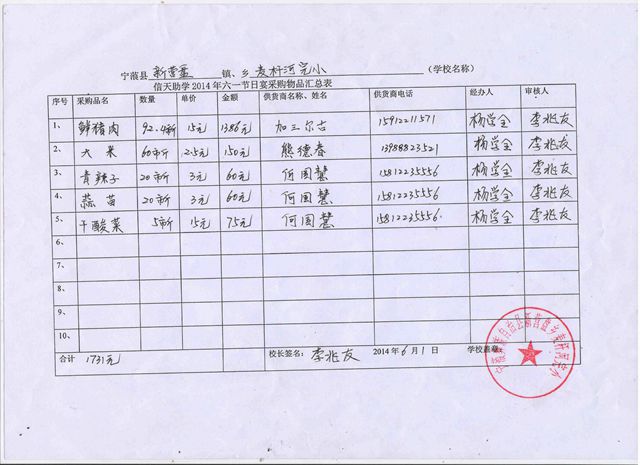 宁蒗县 新营盘 镇、乡 麦杆河完小 (学校名称)
信天助学2014年六一节日宴采购物品汇总表
序号 采购品名 数量 单价 金额 供货商名称、姓名 供货商电话 经办人 审核人
1、 鲜猪肉 92.4斤 15元 1386元 加三尔古 15912211571 杨学全 李兆友
2、 大米 60市斤 2.5元 150元 熊德春 13988823521 杨学全 李兆友
3、 青辣子 20市斤 3元 60元 何国慧 15812235556 杨学全 李兆友
4、 蒜苗 20市斤 3元 60元 何国慧 15812235556 杨学全 李兆友
5、 干酸菜 5市斤 15元 75元 何国慧 15812235556 杨学全 李兆友
6、
7、
8、
9、
10、
合计 1731元 校长签名: 李兆友 2014年6月1日 学校盖章